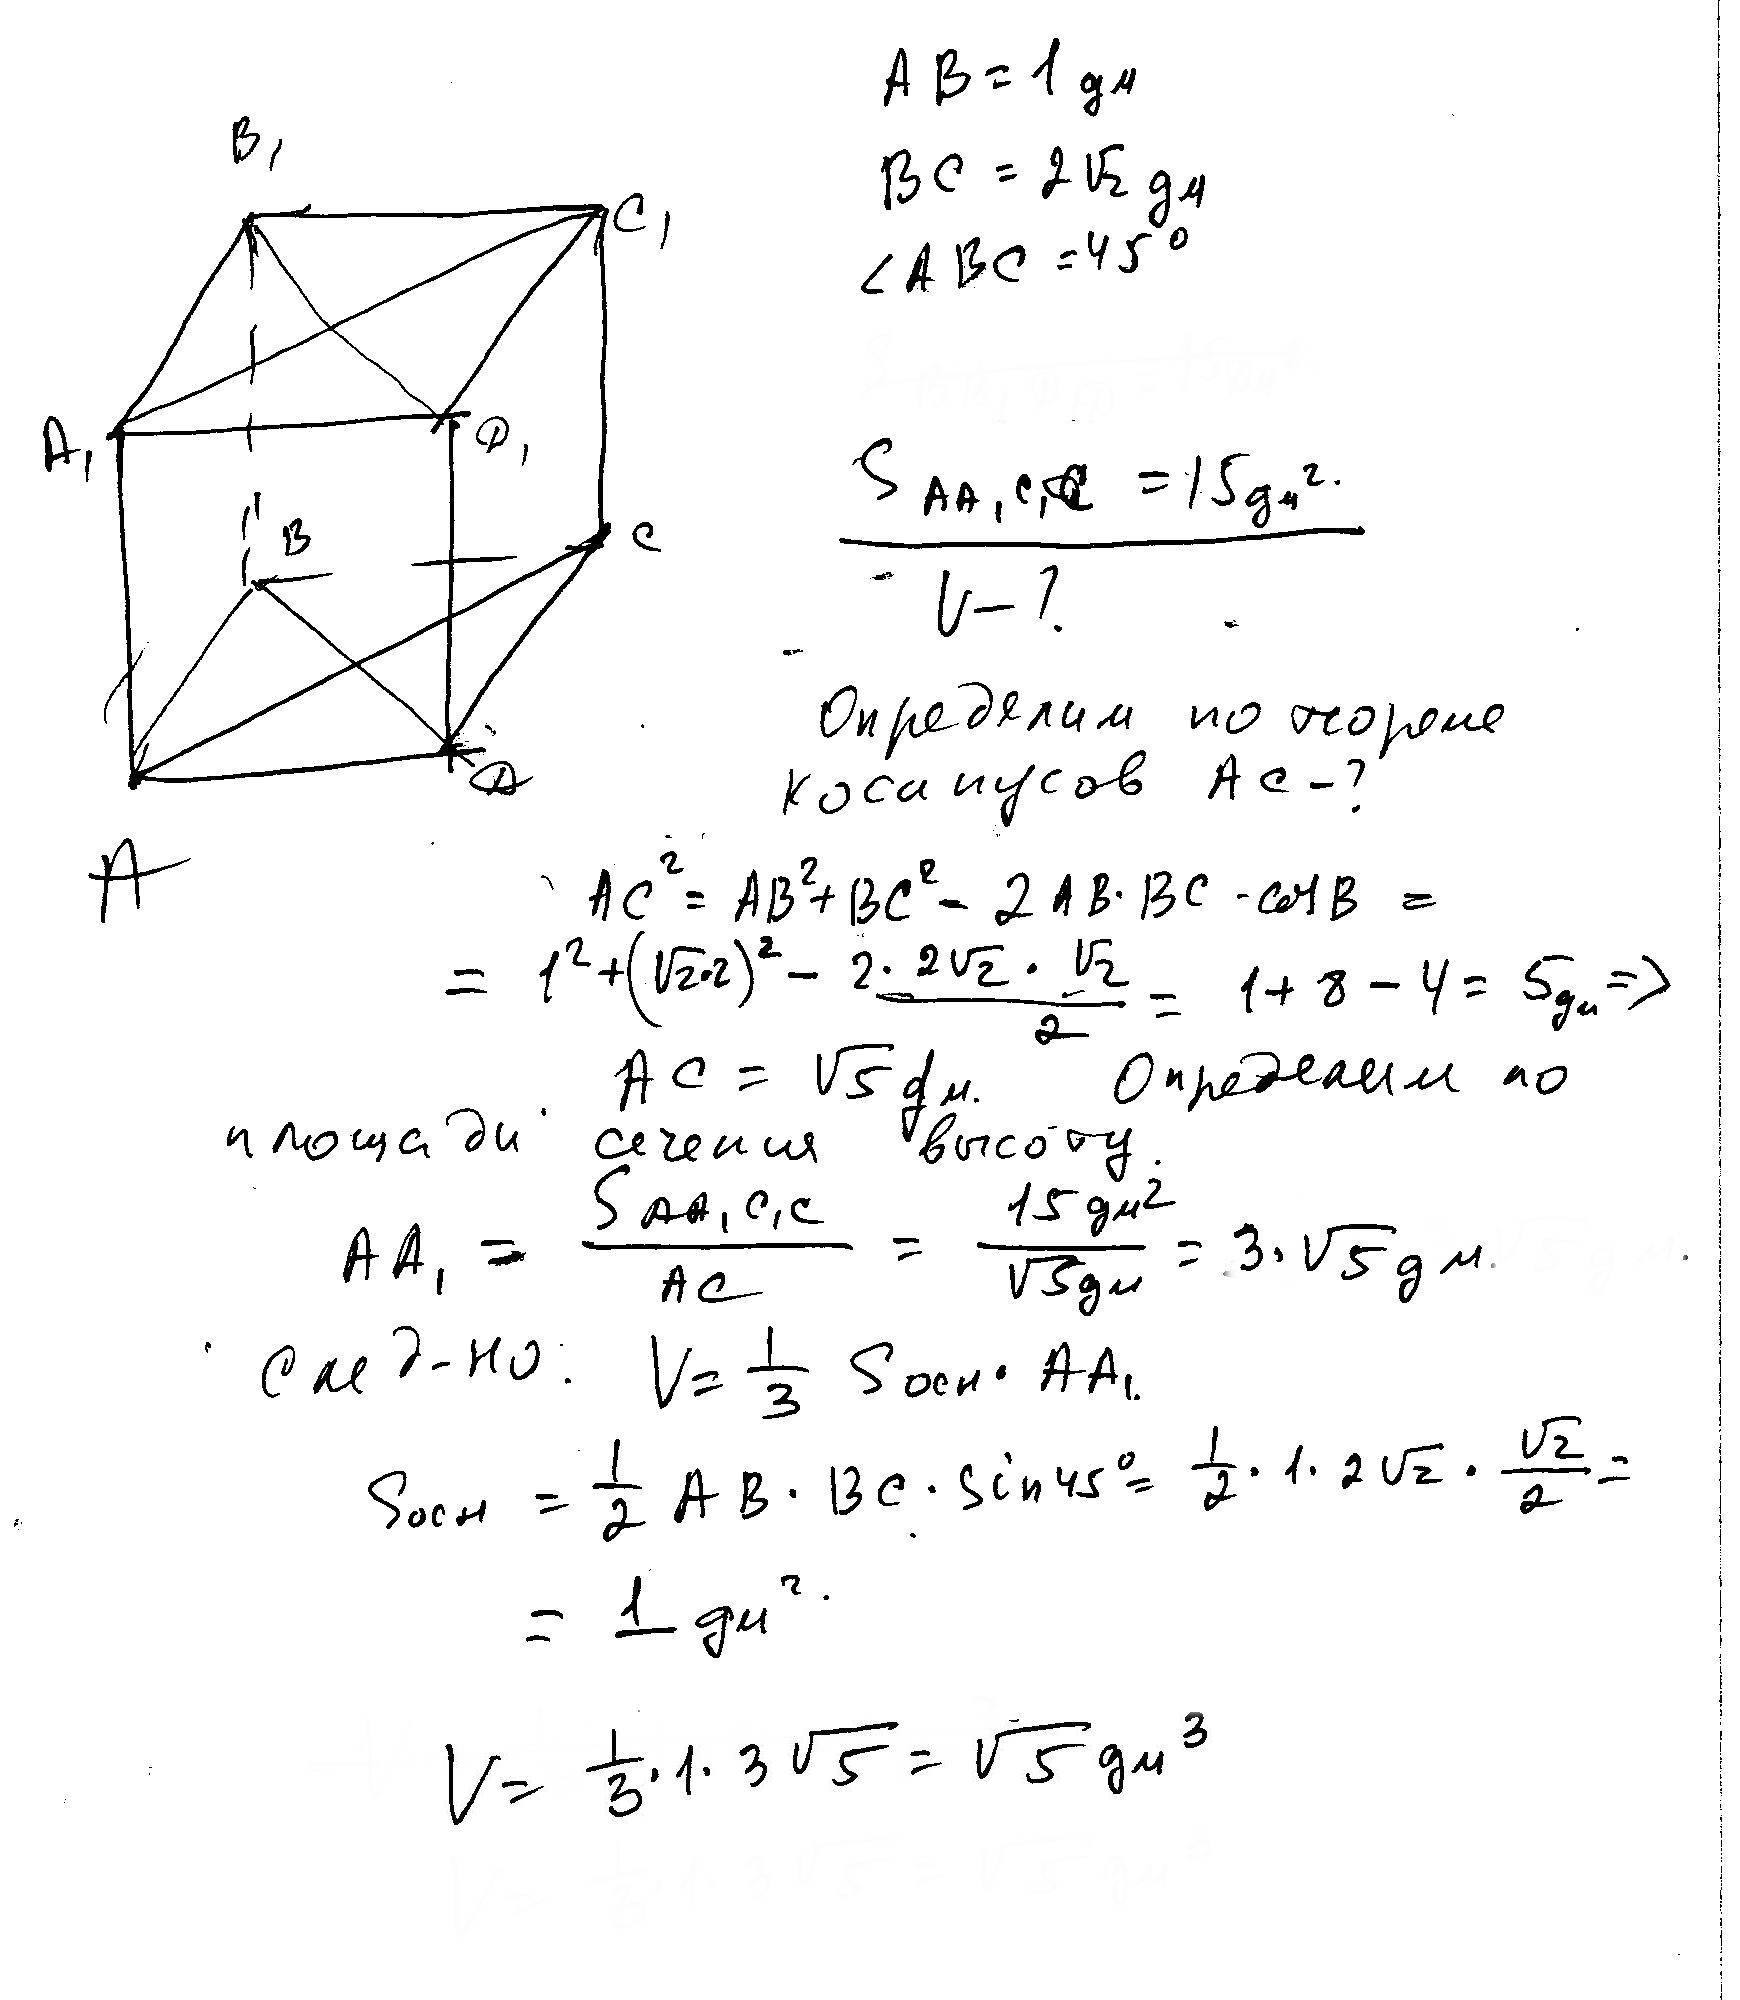 AB = 1 дм
BC = 2√2 дм
∠ABC = 45°
B₁
C₁
A₁
D₁
B
C
D
A
S AA₁C₁C = 15 дм².
V - ?
Определим по теореме
косинусов AC - ?
AC² = AB² + BC² - 2AB·BC·cos B =
= 1² + (√2·2)² - 2·2√2·√2/2 = 1 + 8 - 4 = 5 дм =>
AC = √5 дм. Определим по
площади сечения высоту.
AA₁ = S AA₁C₁C / AC = 15 дм² / √5 дм = 3·√5 дм.
След-но: V = 1/3 Sосн · AA₁.
Sосн = 1/2 AB · BC · sin 45° = 1/2 · 1 · 2√2 · √2/2 =
= 1 дм².
V = 1/3 · 1 · 3√5 = √5 дм³